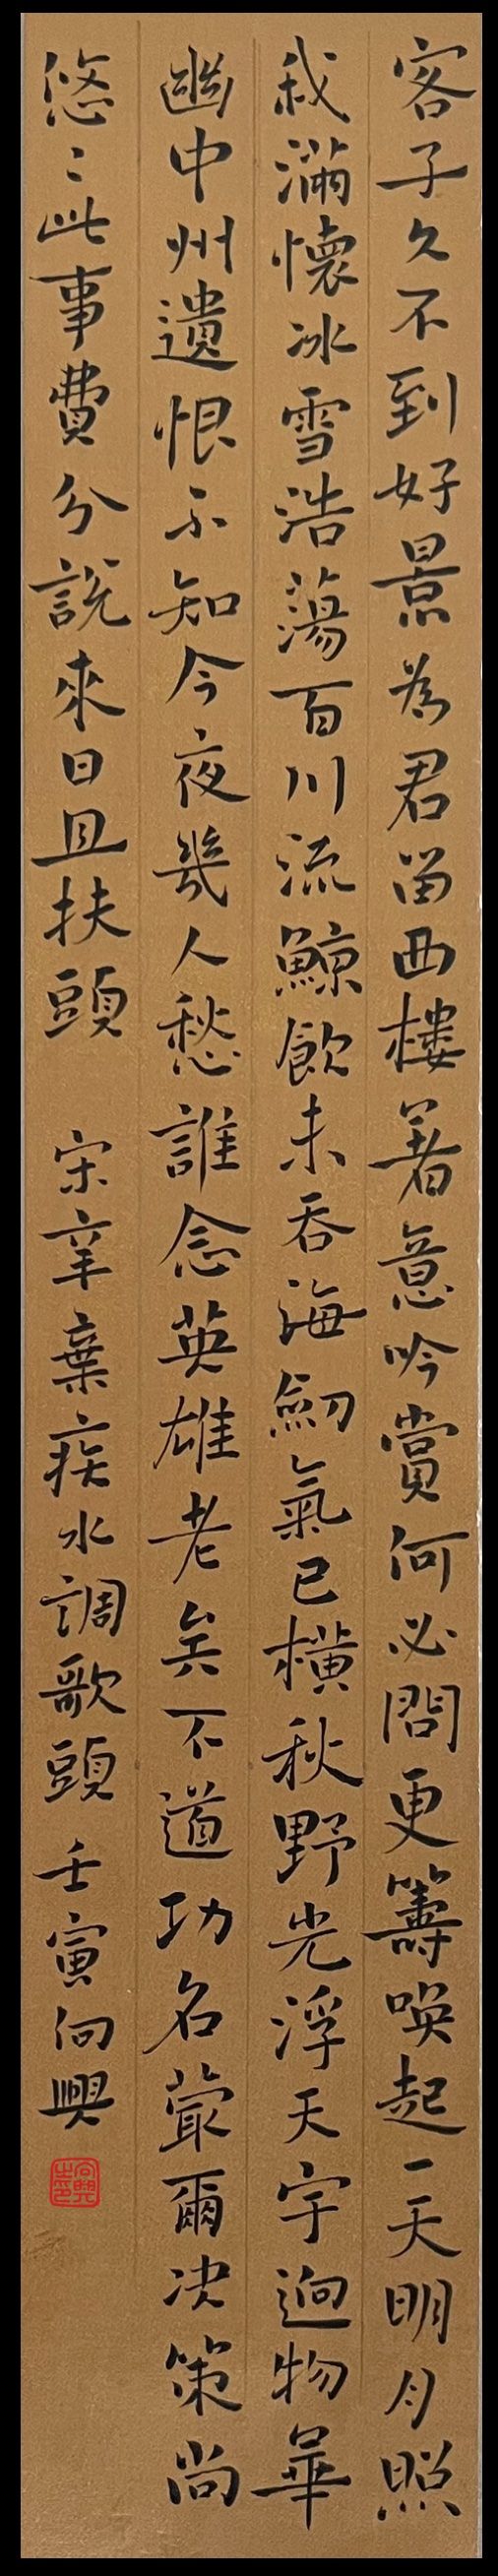 客子久不到好景為君留西樓著意吟賞何必問更籌喚起一天明月照
我滿懷冰雪浩蕩百川流鯨飲未吞海劍氣已橫秋野光浮天宇迥物華
幽中州遺恨不知今夜幾人愁誰念英雄老矣不道功名蕞爾决策尚
悠〻此事費分說來日且扶頭 宋辛棄疾水調歌頭 壬寅向興
向興之印